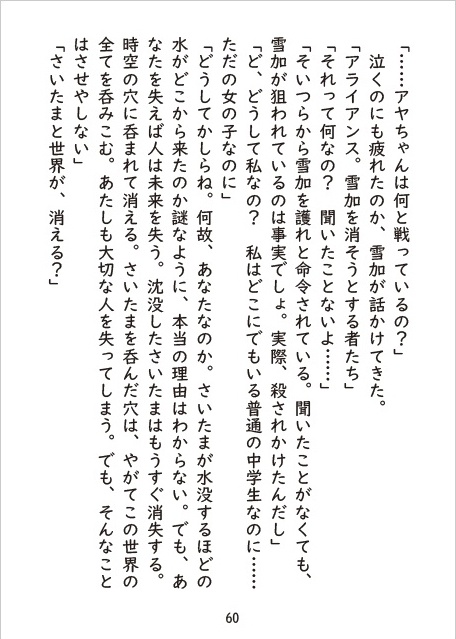 「……アヤちゃんは何と戦っているの？」
泣くのにも疲れたのか、雪加が話かけてきた。
「アライアンス。雪加を消そうとする者たち」
「それって何なの？　聞いたことないよ……」
「そいつらから雪加を護れと命令されている。聞いたことがなくても、
雪加が狙われているのは事実でしょ。実際、殺されかけたんだし」
「ど、どうして私なの？　私はどこにでもいる普通の中学生なのに……
ただの女の子なのに」
「どうしてかしらね。何故、あなたなのか。さいたまが水没するほどの
水がどこから来たのか謎なように、本当の理由はわからない。でも、あ
なたを失えば人は未来を失う。沈没したさいたまはもうすぐ消失する。
時空の穴に呑まれて消える。さいたまを呑んだ穴は、やがてこの世界の
全てを呑みこむ。あたしも大切な人を失ってしまう。でも、そんなこと
はさせやしない」
「さいたまと世界が、消える？」
60